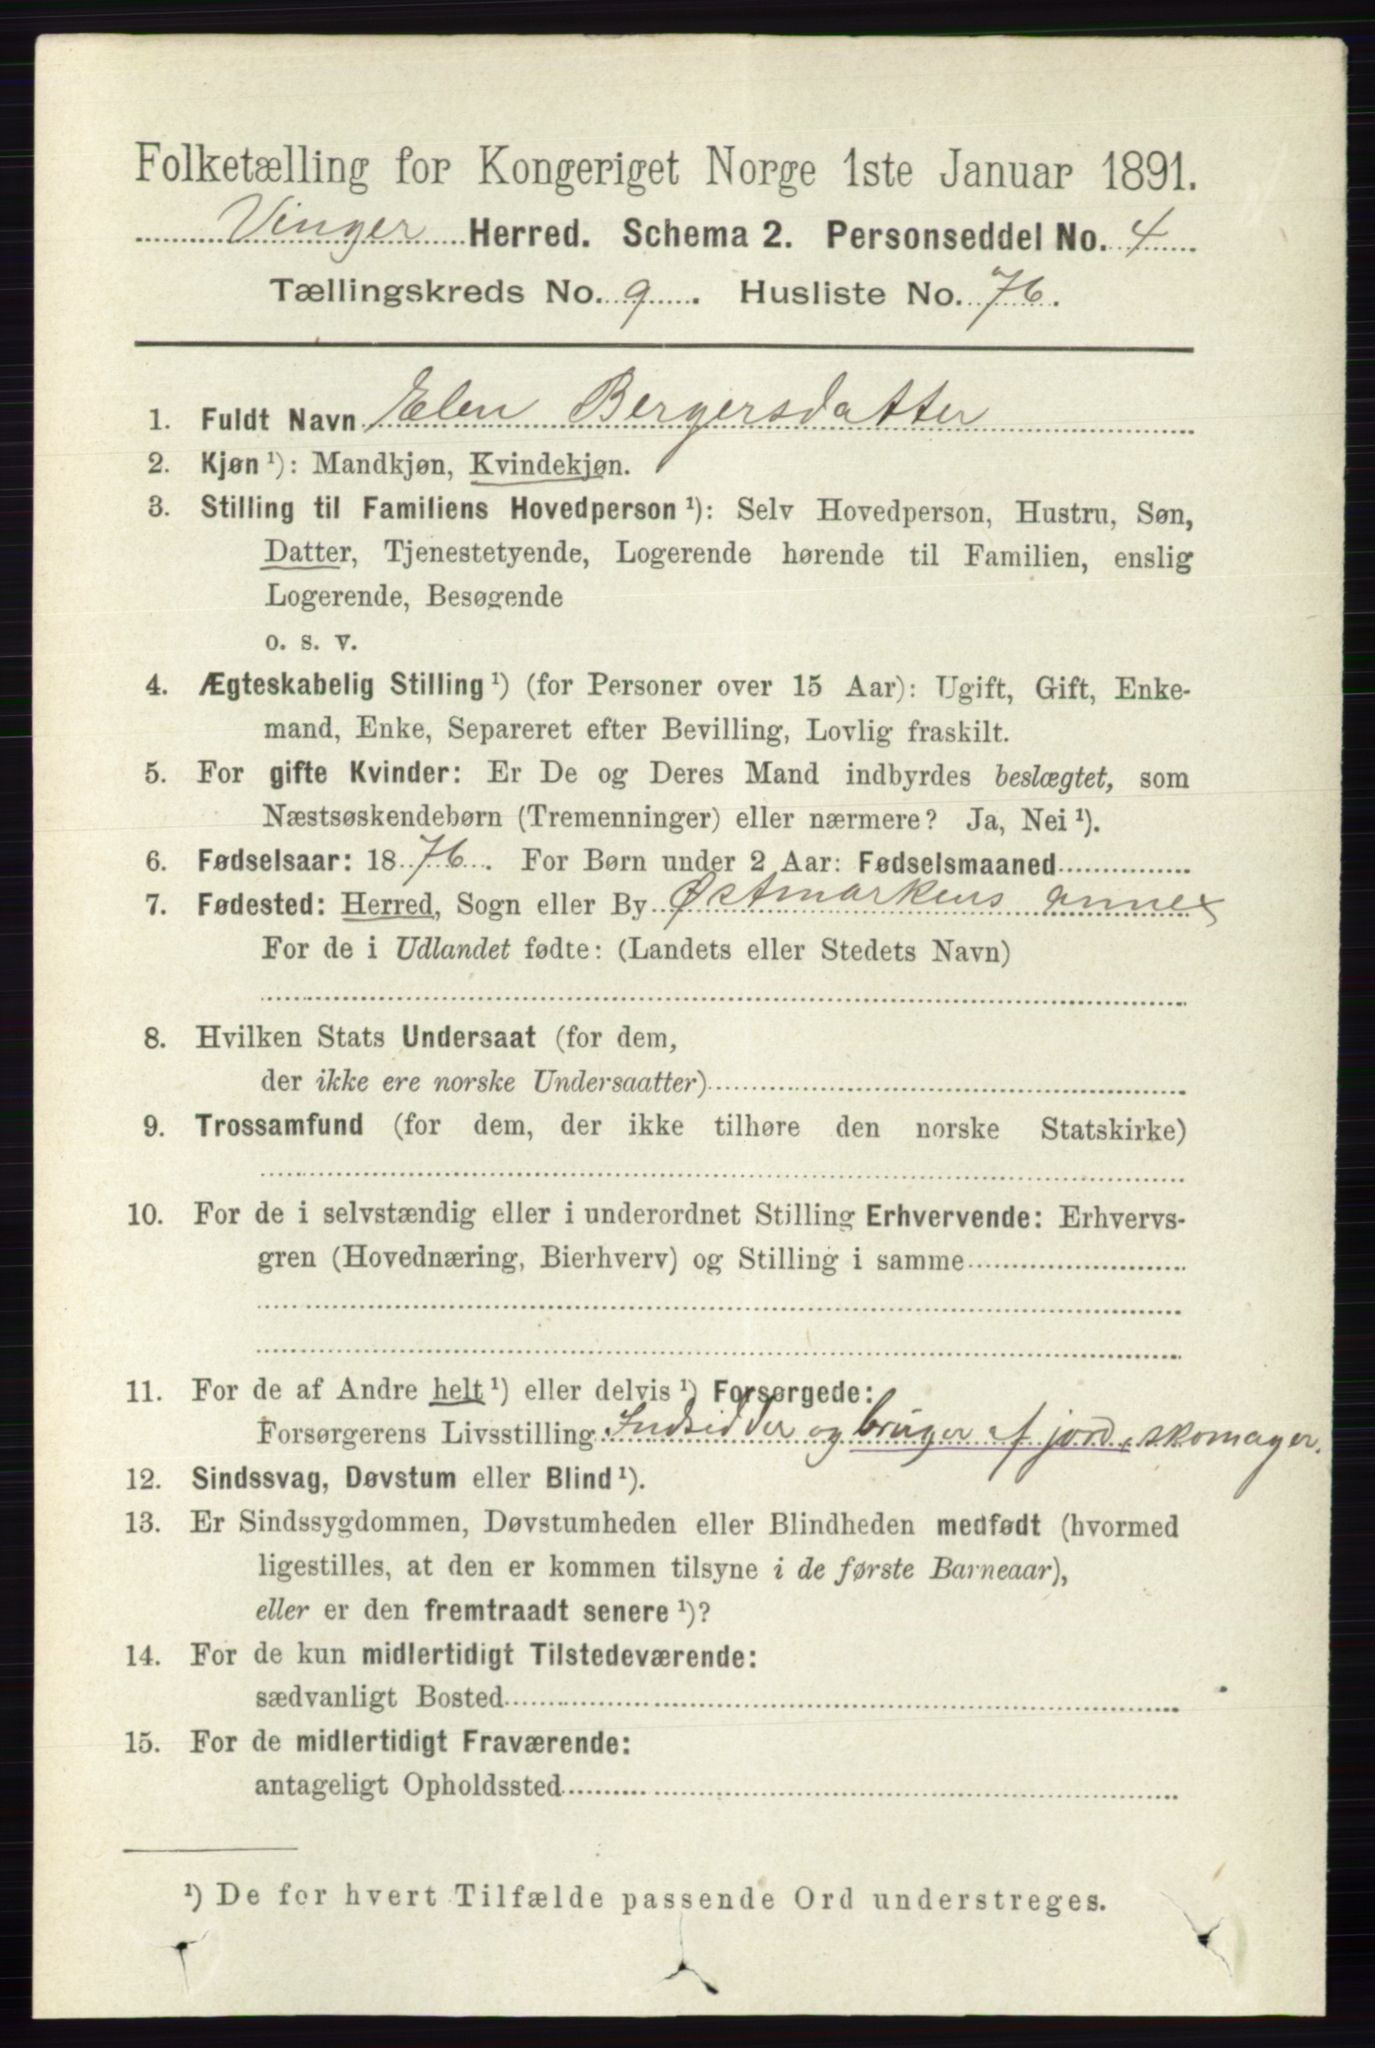 Folketælling for Kongeriget Norge 1ste Januar 1891.
Vinger Herred. Schema 2. Personseddel No. 4
Tællingskreds No. 9. Husliste No. 76.
1. Fuldt Navn Elen Bergersdatter
2. Kjøn ¹): Mandkjøn, Kvindekjøn.
3. Stilling til Familiens Hovedperson ¹): Selv Hovedperson, Hustru, Søn,
Datter, Tjenestetyende, Logerende hørende til Familien, enslig
Logerende, Besøgende
o. s. v.
4. Ægteskabelig Stilling ¹) (for Personer over 15 Aar): Ugift, Gift, Enke-
mand, Enke, Separeret efter Bevilling, Lovlig fraskilt.
5. For gifte Kvinder: Er De og Deres Mand indbyrdes beslægtet, som
Næstsøskendebørn (Tremenninger) eller nærmere? Ja, Nei ¹).
6. Fødselsaar: 1876. For Børn under 2 Aar: Fødselsmaaned
7. Fødested: Herred, Sogn eller By Østmarkens annex
For de i Udlandet fødte: (Landets eller Stedets Navn)
8. Hvilken Stats Undersaat (for dem,
der ikke ere norske Undersaatter)
9. Trossamfund (for dem, der ikke tilhøre den norske Statskirke)
10. For de i selvstændig eller i underordnet Stilling Erhvervende: Erhvervs-
gren (Hovednæring, Bierhverv) og Stilling i samme
11. For de af Andre helt ¹) eller delvis ¹) Forsørgede:
Forsørgerens Livsstilling Indsidder og bruger af jord, skomager.
12. Sindssvag, Døvstum eller Blind ¹).
13. Er Sindssygdommen, Døvstumheden eller Blindheden medfødt (hvormed
ligestilles, at den er kommen tilsyne i de første Barneaar),
eller er den fremtraadt senere ¹)?
14. For de kun midlertidigt Tilstedeværende:
sædvanligt Bosted
15. For de midlertidigt Fraværende:
antageligt Opholdssted
¹) De for hvert Tilfælde passende Ord understreges.